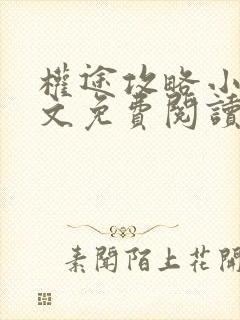 權途攻略小
文免費閱讀
素聞陌上花開